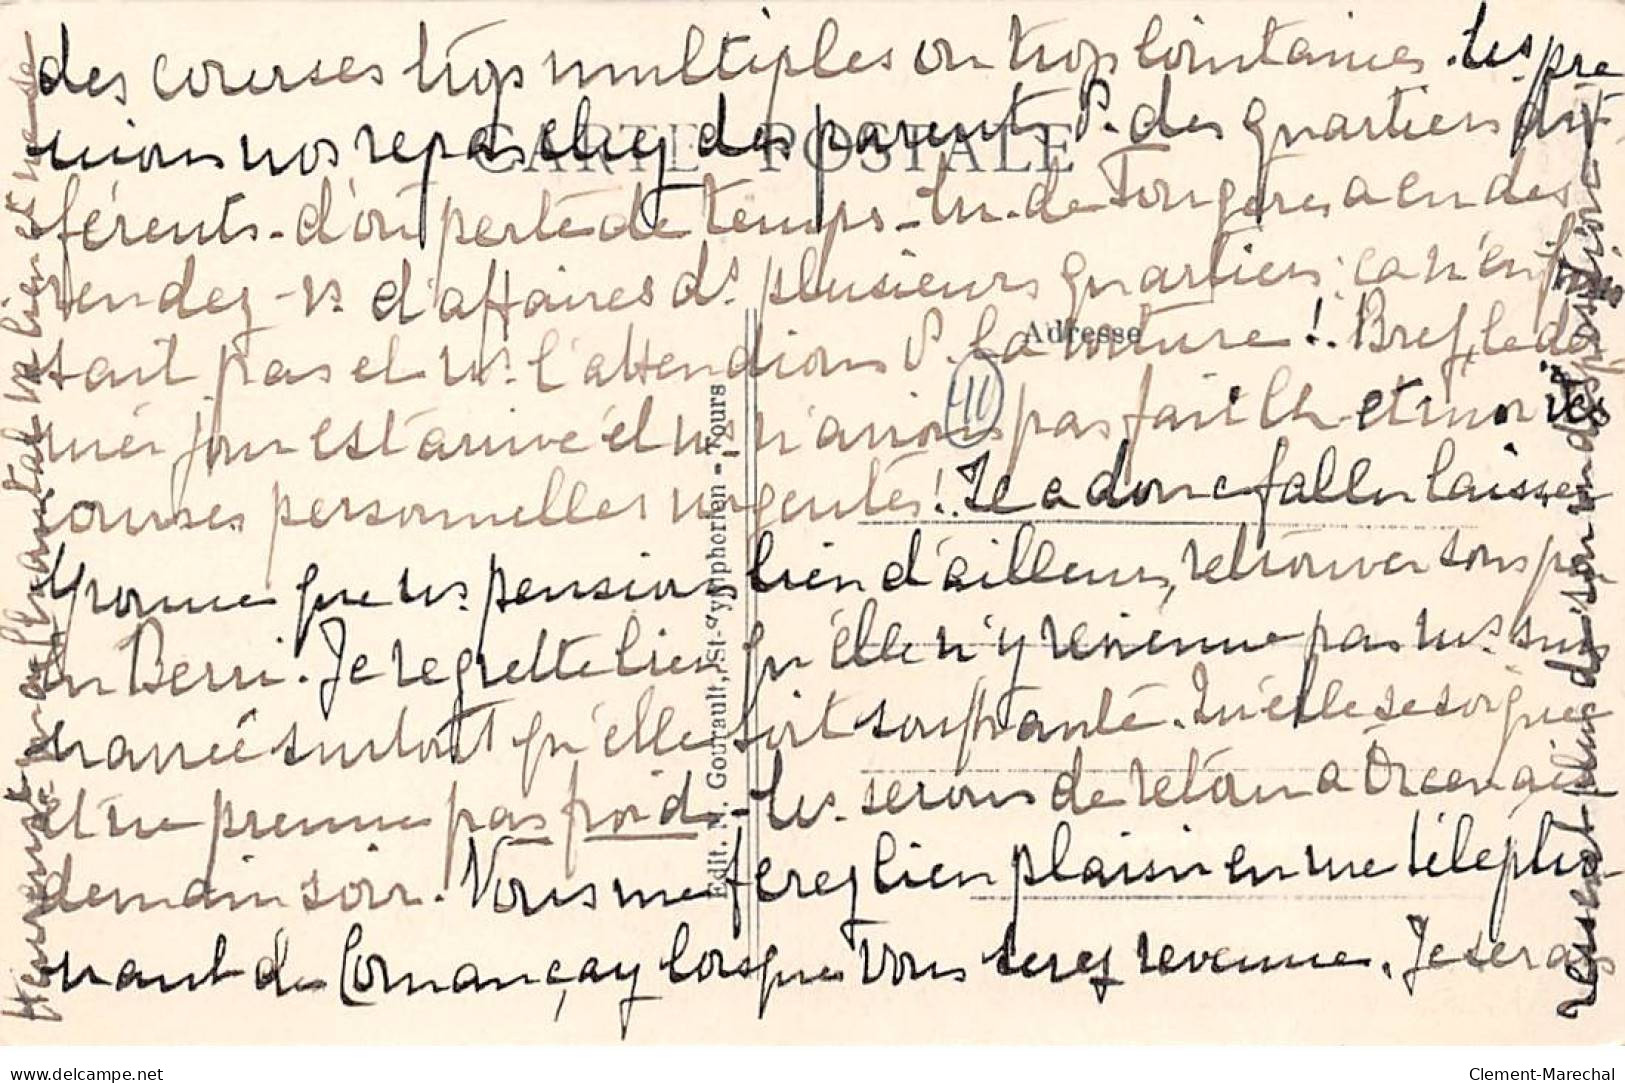 des courses trop multiples ou trop lointaines. Ns. pre
nions nos repas chez des parents P. des quartiers dif
férents - d'où perte de temps - M. de Fougères a eu des
rendez-vs d'affaires ds. plusieurs quartiers : ça n'en fi
sait pas et ns. l'attendions P. la voiture !. Bref, le der
nier jour est arrivé et ns n'avions pas fait Ch- et moi des
courses personnelles urgentes !. Il a donc fallu laisser
Yvonne que ns. pensions bien d'ailleurs, retrouver sous peu
en Berri. Je regrette bien qu'elle n'y revienne pas ns. sms
navrés surtout qu'elle soit souffrante. Qu'elle se soigne
et ne prenne pas froid - Ns. serons de retour à Orcenais
demain soir. Vous me ferez bien plaisir en me télépho-
nant de Cornançay lorsque vous serez revenue. Je serais
CARTE POSTALE
Adresse
Edit. M. Gourault, St-Symphorien - Tours
Clement-Marechal
www.delcampe.net